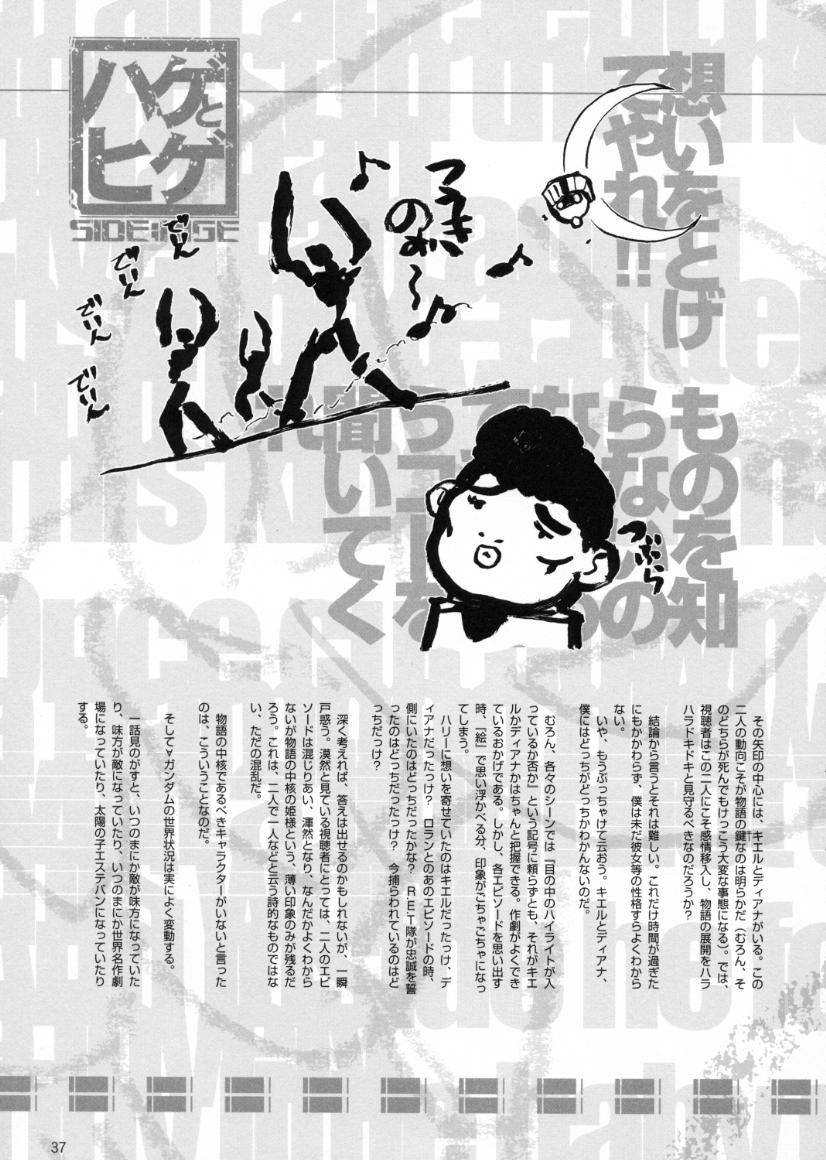 ハゲと
ヒゲ
想いをとげ
てやれ!!
つきの
でいーん
でいーん
でいーん
でいーん
ものを知
らな
聞いてく
れ
つぶら
　その矢印の中心には、キエルとディアナがいる。この
二人の動向こそが物語の鍵なのは明らかだ（むろん、そ
のどちらが死んでもけっこう大変な事態になる）。では、
視聴者はこの二人にこそ感情移入し、物語の展開をハラ
ハラドキドキと見守るべきなのだろうか？
　結論から言うとそれは難しい。これだけ時間が過ぎた
にもかかわらず、僕は未だ彼女等の性格すらよくわから
ない。
　いや、もうぶっちゃけて云おう。キエルとディアナ、
僕にはどっちがどっちかわかんないのだ。
　むろん、各々のシーンでは「目の中のハイライトが入
っているか否か」という記号に頼らずとも、それがキエ
ルかディアナかはちゃんと把握できる。作劇がよくでき
ているおかげである。しかし、各エピソードを思い出す
時、「絵」で思い浮かべる分、印象がごちゃごちゃになっ
てしまう。
　ハリーに想いを寄せていたのはキエルだったっけ、デ
ィアナだったっけ？　ロランとのあのエピソードの時、
側にいたのはどっちだったかな？　RET隊が忠誠を誓
ったのはどっちだったっけ？　今捕らわれているのはど
っちだっけ？
　深く考えれば、答えは出せるのかもしれないが、一瞬
戸惑う。漠然と見ている視聴者にとっては、二人のエピ
ソードは混じりあい、渾然となり、なんだかよくわから
ないが物語の中核の姫様という、薄い印象のみが残るだ
ろう。これは、二人で一人などと云う詩的なものではな
い、ただの混乱だ。
　物語の中核であるべきキャラクターがいないと言った
のは、こういうことなのだ。
　そして∀ガンダムの世界状況は実によく変動する。
　一話見のがすと、いつのまにか敵が味方になっていた
り、味方が敵になっていたり、いつのまにか世界名作劇
場になっていたり、太陽の子エステバンになっていたり
する。
37